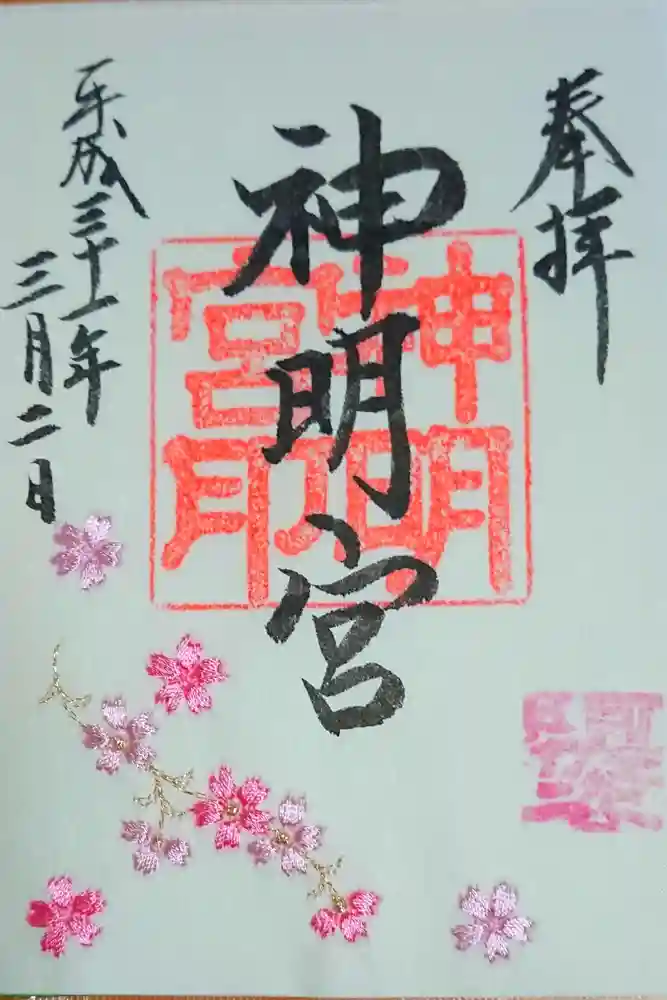 奉拝
神明宮
平成三十一年
三月二日